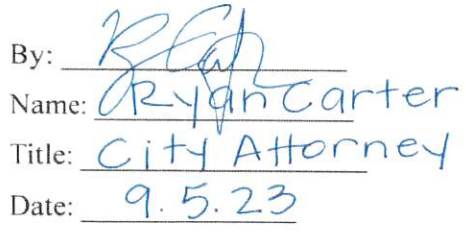 By:
Name: Ryan Carter
Title: City Attorney
Date: 9.5.23